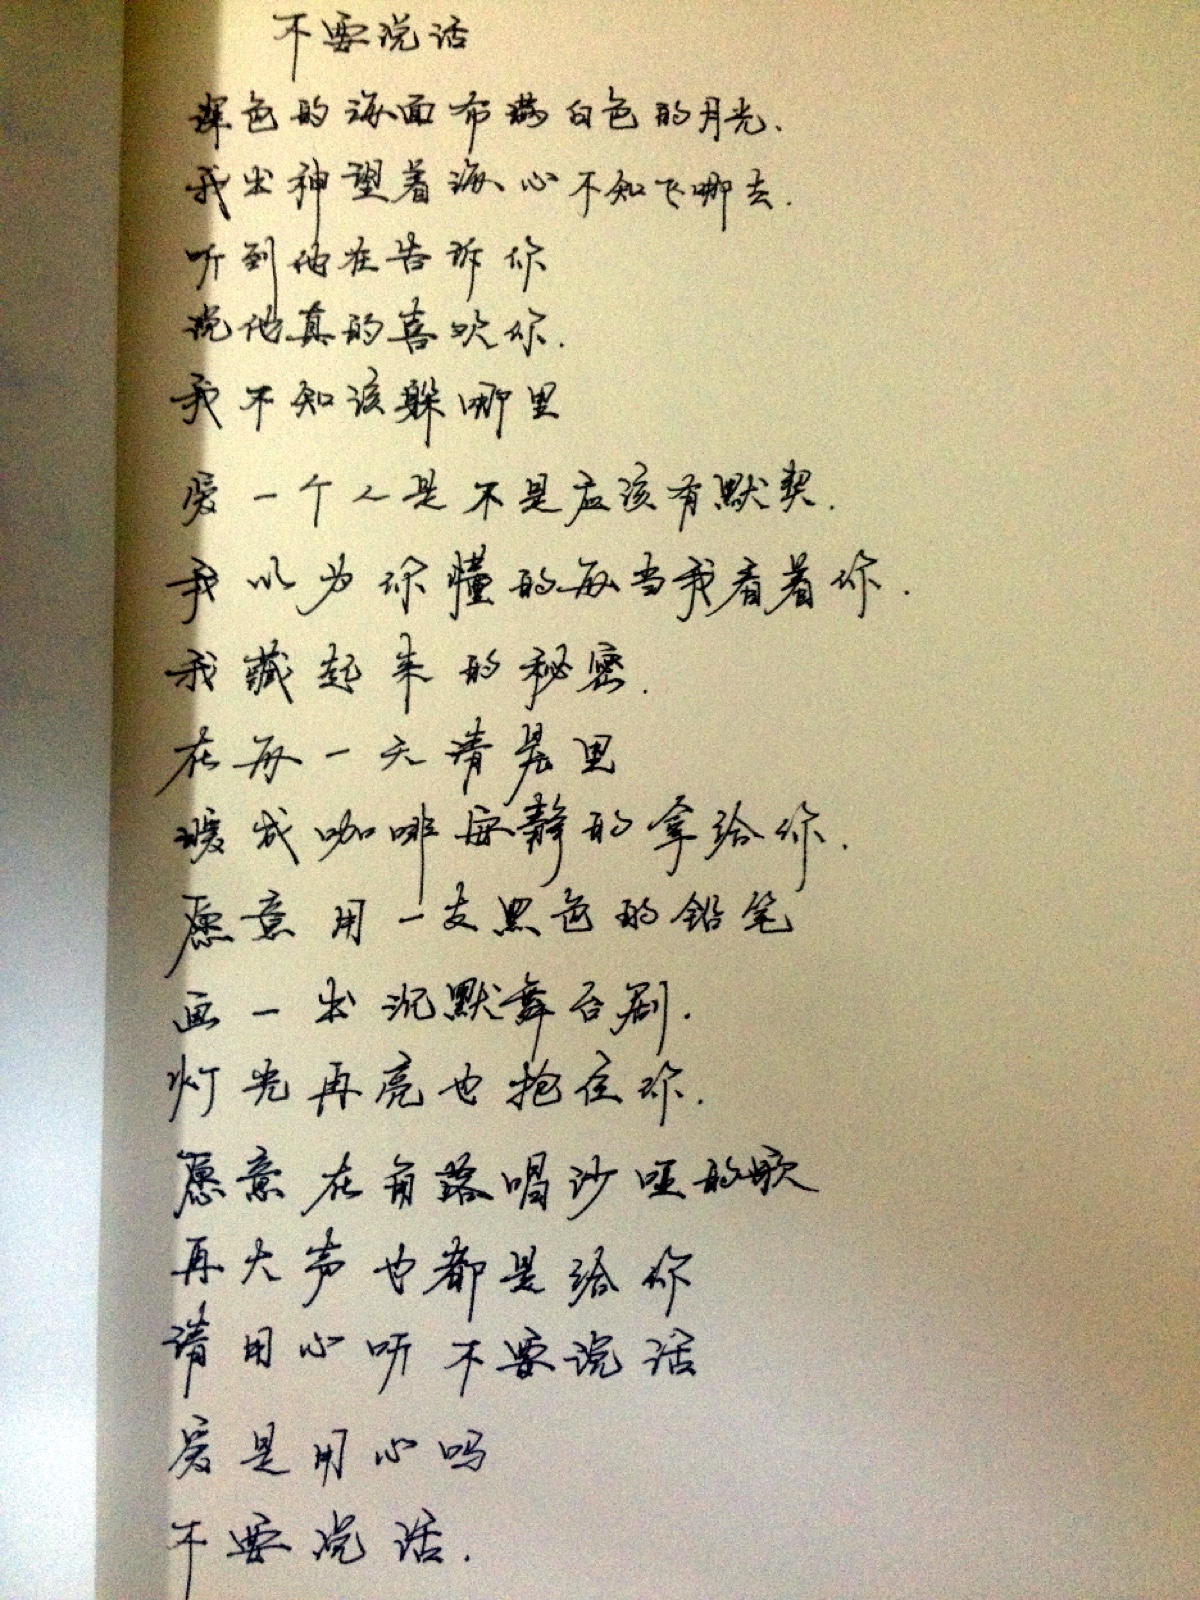 不要说话
深色的海面布满白色的月光.
我出神望着海心不知飞哪去.
听到他在告诉你
说他真的喜欢你.
我不知该躲哪里
爱一个人是不是应该有默契.
我以为你懂的每当我看着你.
我藏起来的秘密.
在每一天清晨里
暖成咖啡安静的拿给你.
愿意用一支黑色的铅笔
画一出沉默舞台剧.
灯光再亮也抱住你.
愿意在角落唱沙哑的歌
再大声也都是给你
请用心听不要说话
爱是用心吗
不要说话.